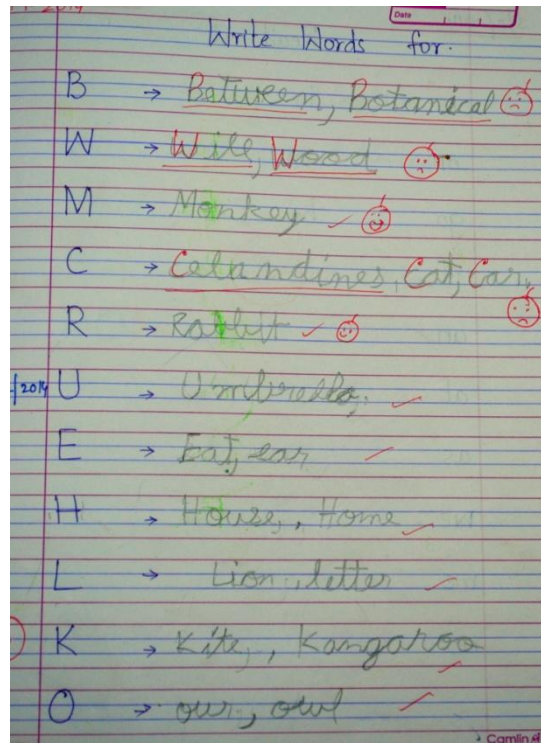 Date
Write Words for.
B → Between, Botanical
W → Will, Wood
M → Monkey
C → Celandines, Cat, Car,
R → Rabbit
2014 U → Umbrella,
E → Eat, ear
H → House, , Home
L → Lion, letter
K → Kite, , Kangaroo
O → our, owl
Camlin